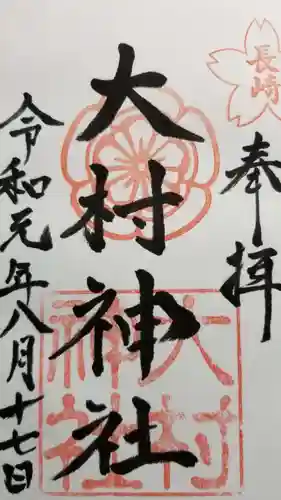 長崎
奉拝
大村神社
大村神社
令和元年八月十七日